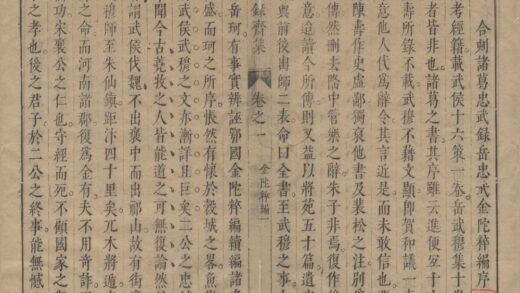 合刻諸葛忠武錄岳忠武金陀粹編序
考經籍載武侯十六策一卷岳武穆集十
者皆非也諸葛之書其序雖云進便宜十
壽所錄不載武穆不藉文顯卽賀和議一
意他人代爲辭令其言近是而未敢信也
陳壽作史虛鄙獨裒他書及裴松之注別
傳然刪去隆中管樂之辭朱子非焉復作
意迨讀今所傳則又益以將苑五十篇遺
與前後出師二表命曰全書至武穆之事
齊集 卷之一 金陀粹編
岳珂有事實辨誣鄂國金陀稡編續編諸
盛而珂之所序悵然有懷於穀城之畧
武侯武穆之文亦漸詳且巨矣二公之忠
聞今古蕘牧之人皆能道之可無復論然
謂武侯伐魏不出褒中而出祁山故有街
擅師至朱仙鎮距汴四十里矣兀术將遁
之命而河南諸郡復爲金有夫不用奇計
功宋襄公之仁也守經而死不顧國家之
之孝也後之君子於二公之終事能無憾